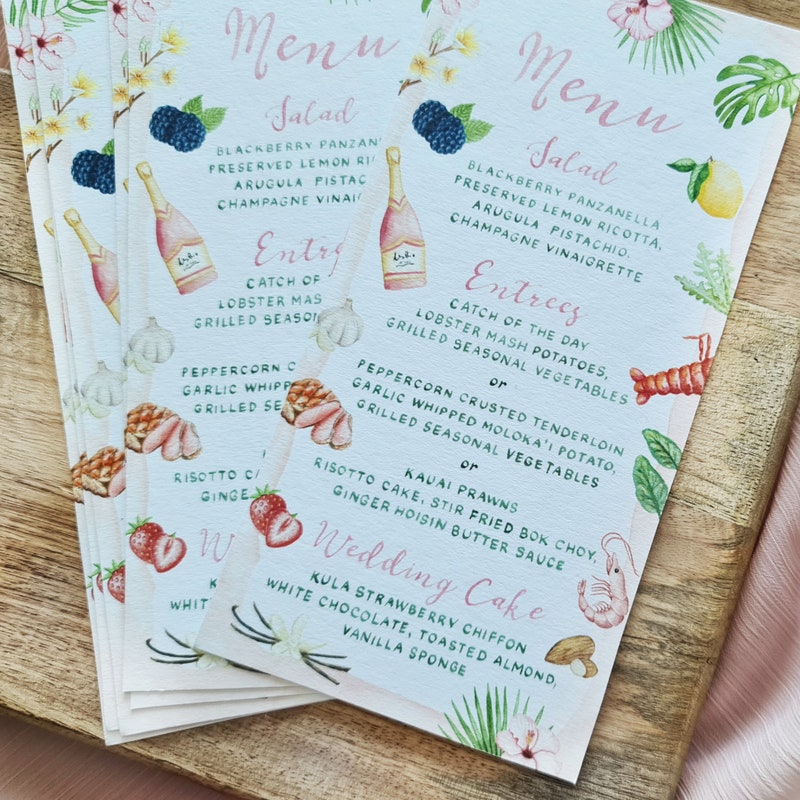 Menu
Salad
BLACKBERRY PANZANELLA
PRESERVED LEMON RICOTTA,
ARUGULA PISTACHIO.
CHAMPAGNE VINAIGRETTE
Entrees
CATCH OF THE DAY
LOBSTER MASH POTATOES,
GRILLED SEASONAL VEGETABLES
or
PEPPERCORN CRUSTED TENDERLOIN
GARLIC WHIPPED MOLOKA'I POTATO,
GRILLED SEASONAL VEGETABLES
or
KAUAI PRAWNS
RISOTTO CAKE, STIR FRIED BOK CHOY,
GINGER HOISIN BUTTER SAUCE
Wedding Cake
KULA STRAWBERRY CHIFFON
WHITE CHOCOLATE, TOASTED ALMOND,
VANILLA SPONGE
Menu
Salad
BLACKBERRY PANZANE
PRESERVED LEMON RI
ARUGULA PISTAC
CHAMPAGNE VINAIG
Entre
CATCH OF
LOBSTER MAS
GRILLED SEASON
PEPPERCORN C
GARLIC WHIPP
GRILLED SE
RISOTTO C
GINGE
W
K
WHIT